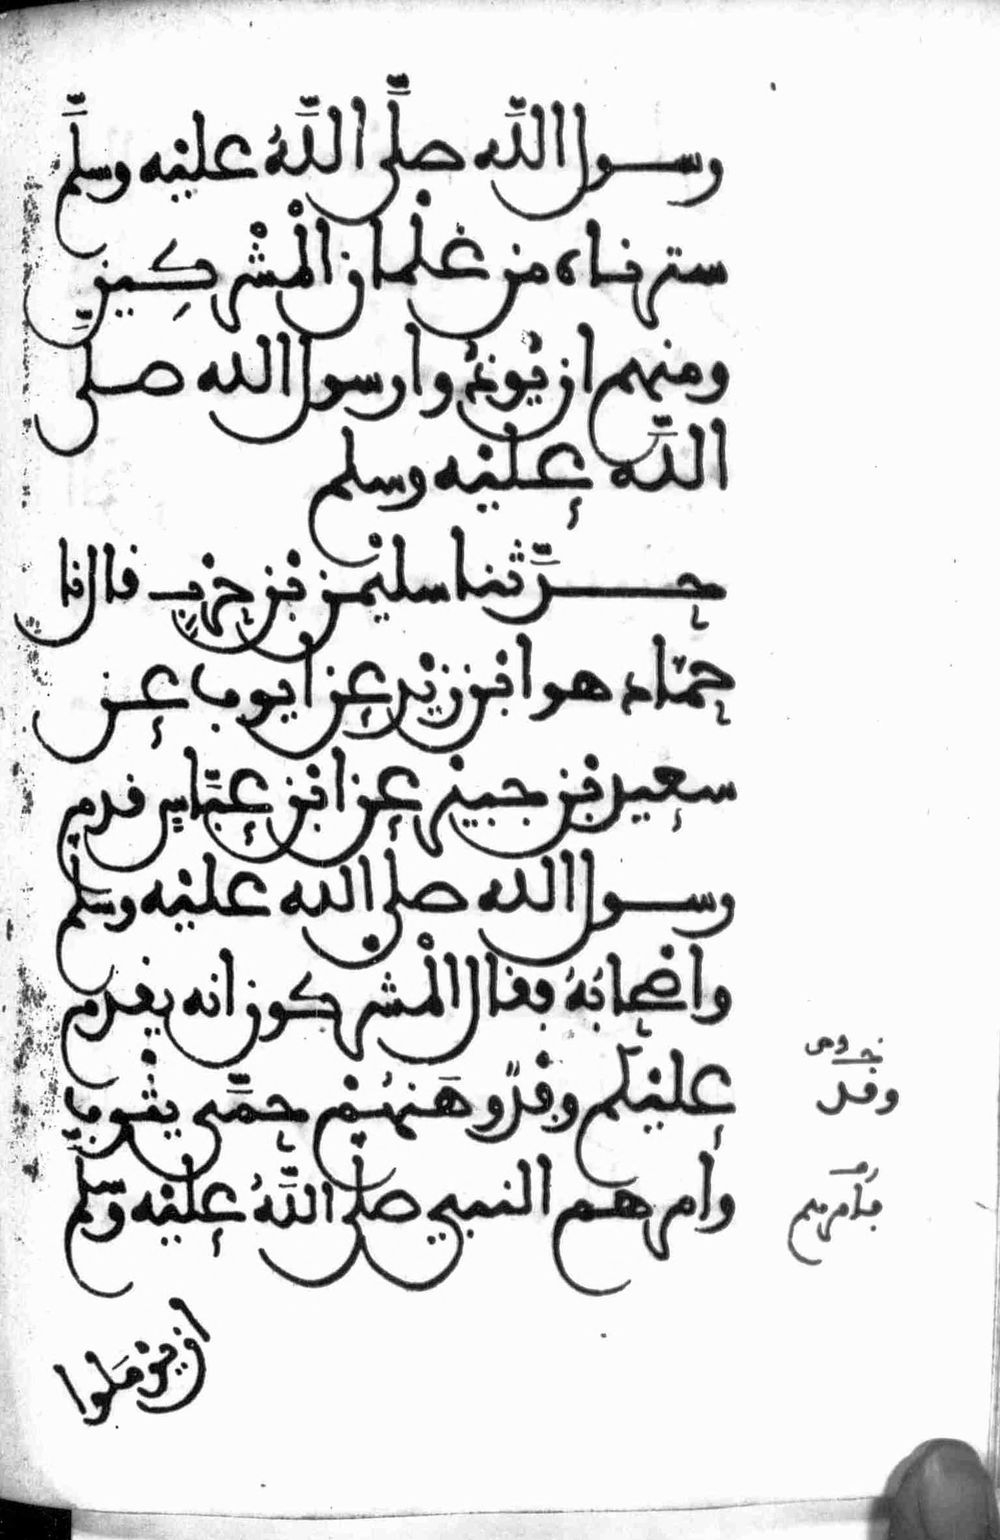 رسول الله صلَّى اللَّهُ عليْه وسلَّم
سترناه من غلْمان الْمشْركِين
ومنهم ان يُوذُوا رسول الله صلَّى
اللَّه عليْه وسلم
حدَّثنا سليْمن بْن حرْب قال نا
حمّاد هو ابْن زيْد عن ايوب عن
سعيد بْن جبيْر عن ابْن عبَّاسٍ قدم
رسول الله صلى الله عليْه وسلم
واصْحابُهُ فقال الْمشركون انه يقدم
عليْكم وفْدٌ وهَنهُمْ حمَّى يثْرب
وامرهم النبي صلى اللَّهُ عليْه وسلَّم
ان يرْمَلوا
وقد
فأمرهم